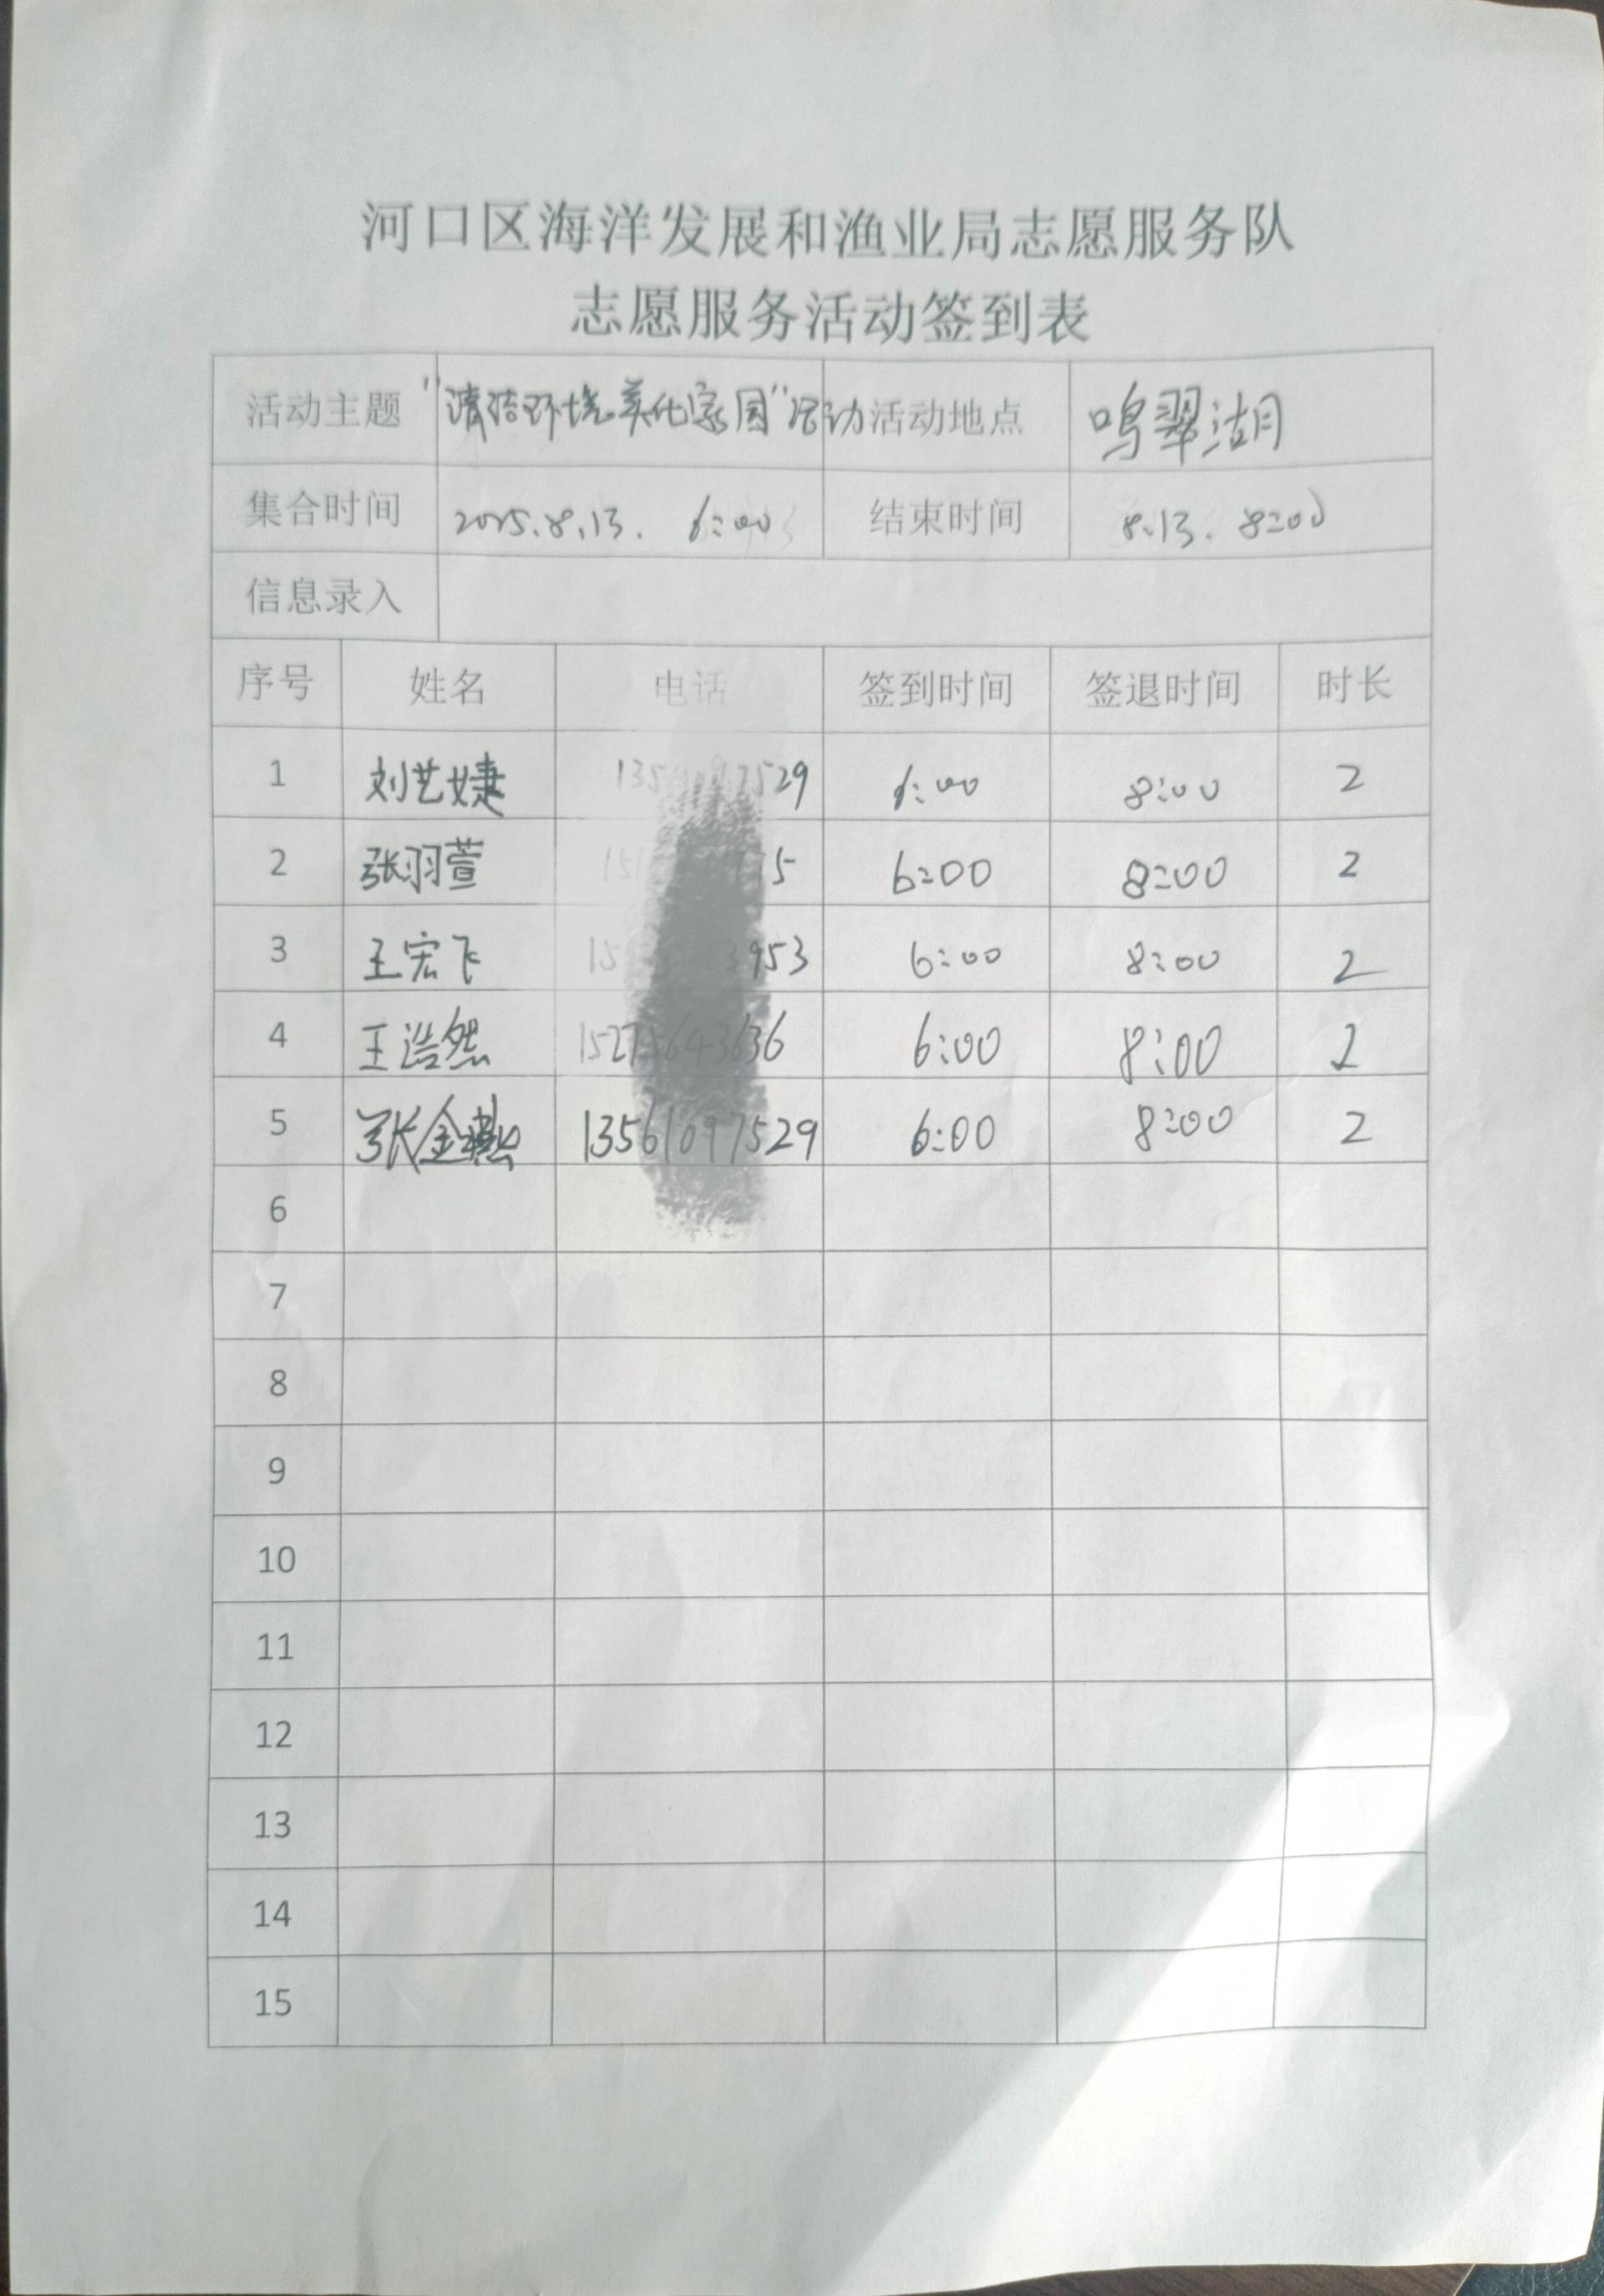 河口区海洋发展和渔业局志愿服务队
志愿服务活动签到表
活动主题 "清洁环境美化家园"活动 活动地点 鸣翠湖
集合时间 2025.8.13. 6:00 结束时间 8.13. 8:00
信息录入
序号 姓名 电话 签到时间 签退时间 时长
1 刘艺婕 6:00 8:00 2
2 张羽萱 6:00 8:00 2
3 王宏飞 6:00 8:00 2
4 王浩然 15275643636 6:00 8:00 2
5 张金 13561097529 6:00 8:00 2
6
7
8
9
10
11
12
13
14
15